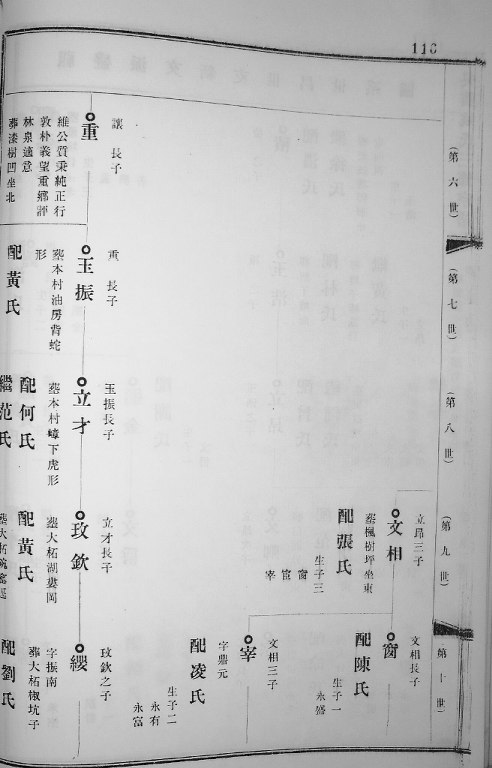 116
(第六世)
讓長子
重
維公質秉純正行
敦朴義望重鄉評
林泉適意
葬漆樹凹坐北
(第七世)
重長子
玉振
墓本村油房背蛇
形
配黃氏
(第八世)
玉振長子
立才
墓本村嶂下虎形
配何氏
繼范氏
(第九世)
立昂三子
文相
墓楓樹坪坐東
配張氏
生子三
窗
宦
宰
立才長子
玫欽
墓大柘湖婁岡
配黃氏
(第十世)
文相長子
窗
配陳氏
生子一
永盛
文相三子
宰
字鼎元
配凌氏
生子二
永有
永富
玫欽之子
纓
字振南
葬大柘椒坑子
配劉氏